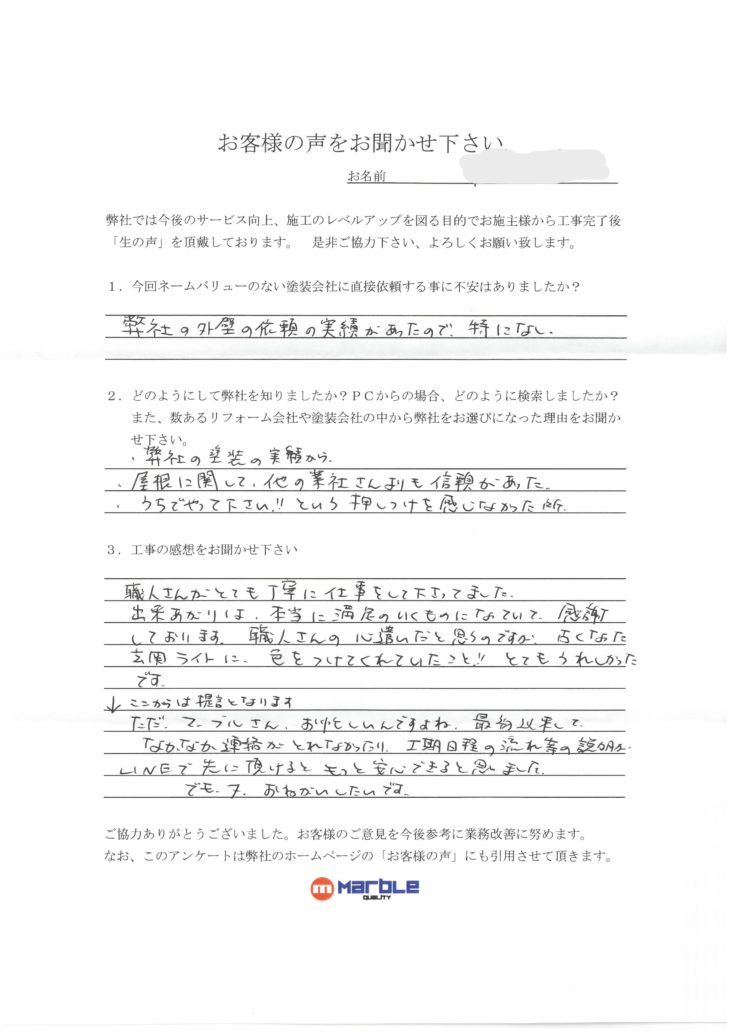 お客様の声をお聞かせ下さい
お名前
弊社では今後のサービス向上、施工のレベルアップを図る目的でお施主様から工事完了後
「生の声」を頂戴しております。　是非ご協力下さい、よろしくお願い致します。
１．今回ネームバリューのない塗装会社に直接依頼する事に不安はありましたか？
弊社の外壁の依頼の実績があったので、特になし.
２．どのようにして弊社を知りましたか？ＰＣからの場合、どのように検索しましたか？
また、数あるリフォーム会社や塗装会社の中から弊社をお選びになった理由をお聞か
せ下さい。
・弊社の塗装の実績から.
・屋根に関して、他の業社さんよりも信頼があった。
・うちでやって下さい!!という押しつけを感じなかった所.
３．工事の感想をお聞かせ下さい
職人さんがとても丁寧に仕事をして下さってました.
出来あがりは、本当に満足のいくものになっていて、感謝
しております。職人さんの心遣いだと思うのですが、古くなった
玄関ライトに、色をつけてくれていたこと!! とてもうれしかった
です.
↓ここからは提言となります
ただ、マーブルさん、お忙しいんですよね、最初以来して、
なかなか連絡がとれなかったり、工期日程の流れ等の説明が、
LINEで先に頂けると もっと安心できると思いました.
でも、又、おねがいしたいです.
ご協力ありがとうございました。お客様のご意見を今後参考に業務改善に努めます。
なお、このアンケートは弊社のホームページの「お客様の声」にも引用させて頂きます。
marble
QUALITY